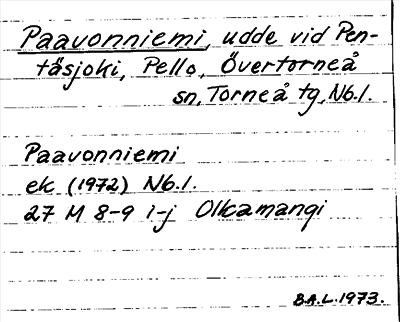 Paavonniemi, udde vid Pen-
täsjoki, Pello, Övertorneå
sn, Torneå tg, Nb.l.
Paavonniemi
ek. (1972) Nb.l.
27 M 8-9 i-j Olkamangi
B.A.L. 1973.